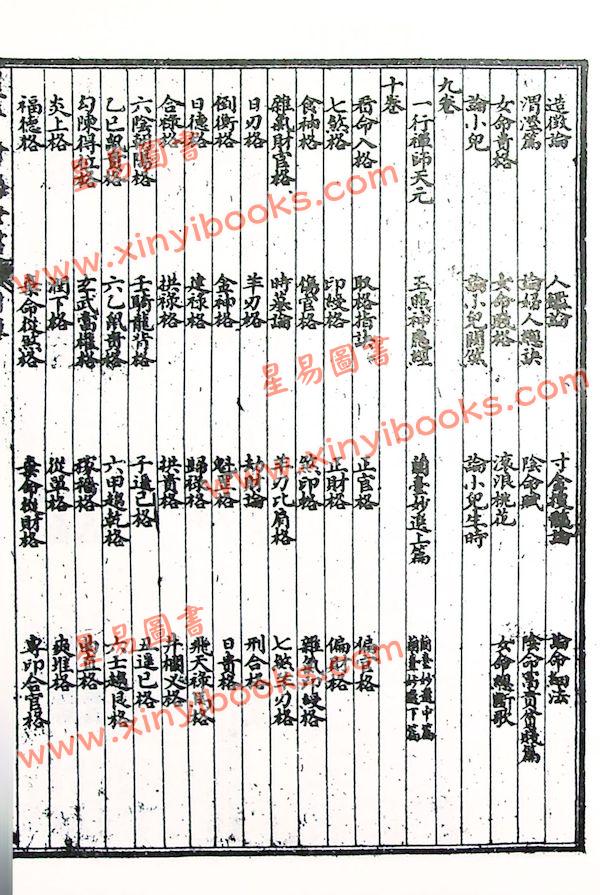 造微論 人鑑論 寸金搜髓論 論命細法
渭涇篇 論婦人總訣 陰命賦 陰命富貴貧賤篇
女命貴格 女命賤格 滾浪桃花 女命總斷歌
論小兒 論小兒關煞 論小兒生時
九卷
一行禪師天元 玉照神應經 蘭臺妙選上篇 蘭臺妙選中篇 蘭臺妙選下篇
十卷
看命入格 取格指訣 正官格 偏官格
七煞格 印綬格 正財格 偏財格
食神格 傷官格 煞印格 雜氣印綬格
雜氣財官格 時墓論 羊刃比肩格 七煞羊刃格
日刃格 羊刃格 劫財論 刑合格
倒衝格 金神格 魁罡格 日貴格
日德格 建祿格 歸祿格 飛天祿馬格
合祿格 拱祿格 拱貴格 井欄叉格
六陰朝陽格 壬騎龍背格 子遙巳格 丑遙巳格
鼠貴格 六乙鼠貴格 六甲趨乾格 六壬趨艮格
勾陳得位格 玄武當權格 稼穡格
炎上格 潤下格 從革格
福德格 棄命從煞格 棄命從財格 專印合官格
星易圖書
www.xinyibooks.com
星易圖書
www.xinyibooks.com
星易圖書
www.xinyibooks.com